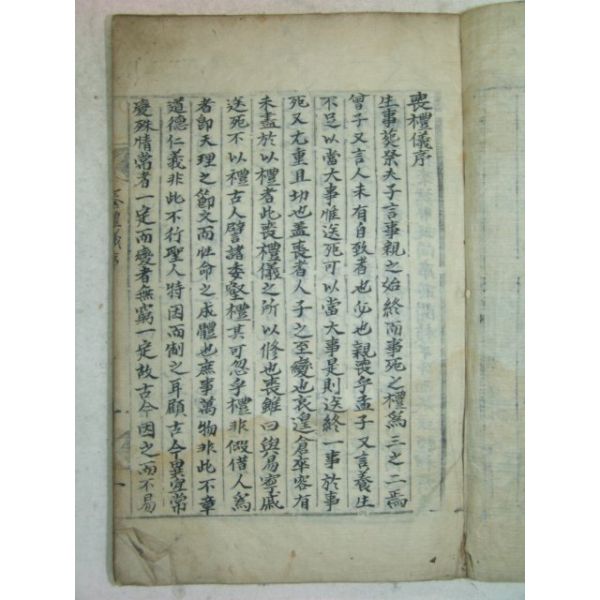 喪禮儀序
生事葬祭夫子言事親之始終而事死之禮爲三之二焉
曾子又言人未有自致者也必也親喪乎孟子又言養生
不足以當大事惟送死可以當大事是則送終一事於事
死又尤重且切也盖喪者人子之至變也哀遑倉卒容有
未盡於以禮者此喪禮儀之所以修也喪雖曰與易寧戚
送死不以禮古人譬諸委壑禮其可忽乎禮非假借人爲
者卽天理之節文而性命之成體也庶事萬物非此不章
道德仁義非此不行聖人特因而制之耳顧古今異宜常
變殊情常者一定而變者無窮一定故古今因之而不易